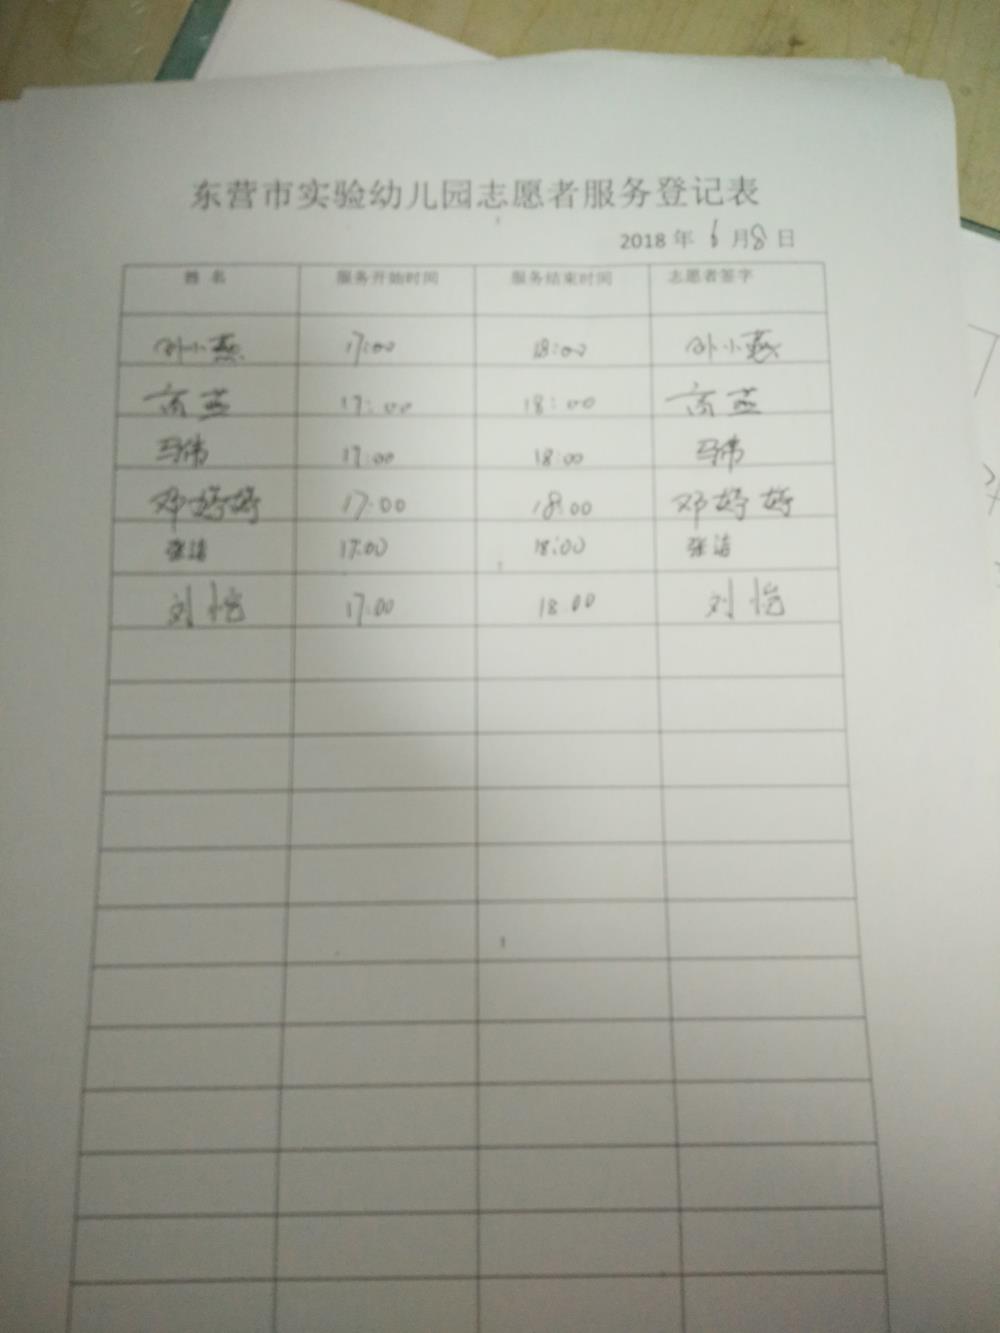 东营市实验幼儿园志愿者服务登记表
2018 年 6 月 8 日
姓 名 服务开始时间 服务结束时间 志愿者签字
孙小燕 17:00 18:00 孙小燕
高燕 17:00 18:00 高燕
马伟 17:00 18:00 马伟
邓婷婷 17:00 18:00 邓婷婷
张洁 17:00 18:00 张洁
刘怡 17:00 18:00 刘怡